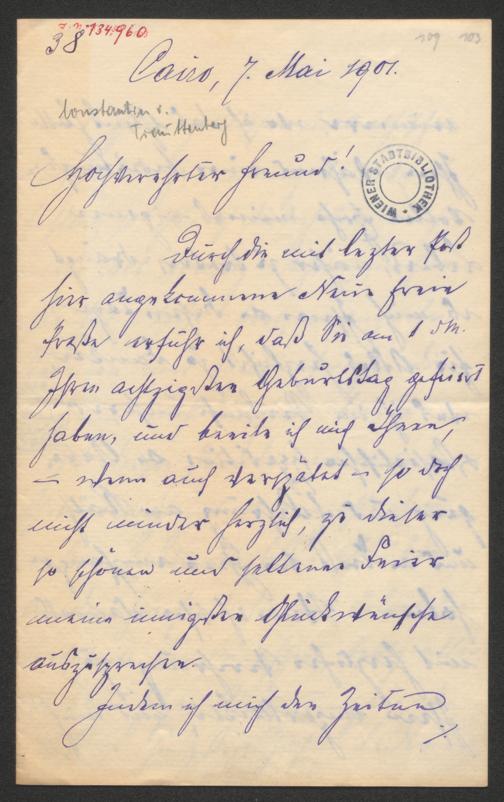 J.N. 134.960
38
109 103
Cairo, 7. Mai 1901.
Constantin v.
Trauttenberg
WIENER STADTBIBLIOTHEK
Hochverehrter Freund!
Durch die mit letzter Post
hier angekommene Neue Freie
Presse erfuhr ich, daß Sie am 1 dM.
Ihren achtzigsten Geburtstag gefeiert
haben, und beeile ich mich Ihnen,
– wenn auch verspätet – so doch
nicht minder herzlich, zu dieser
so schönen und seltenen Feier
meine innigsten Glückwünsche
auszusprechen.
Indem ich mich der Zeiten
./.